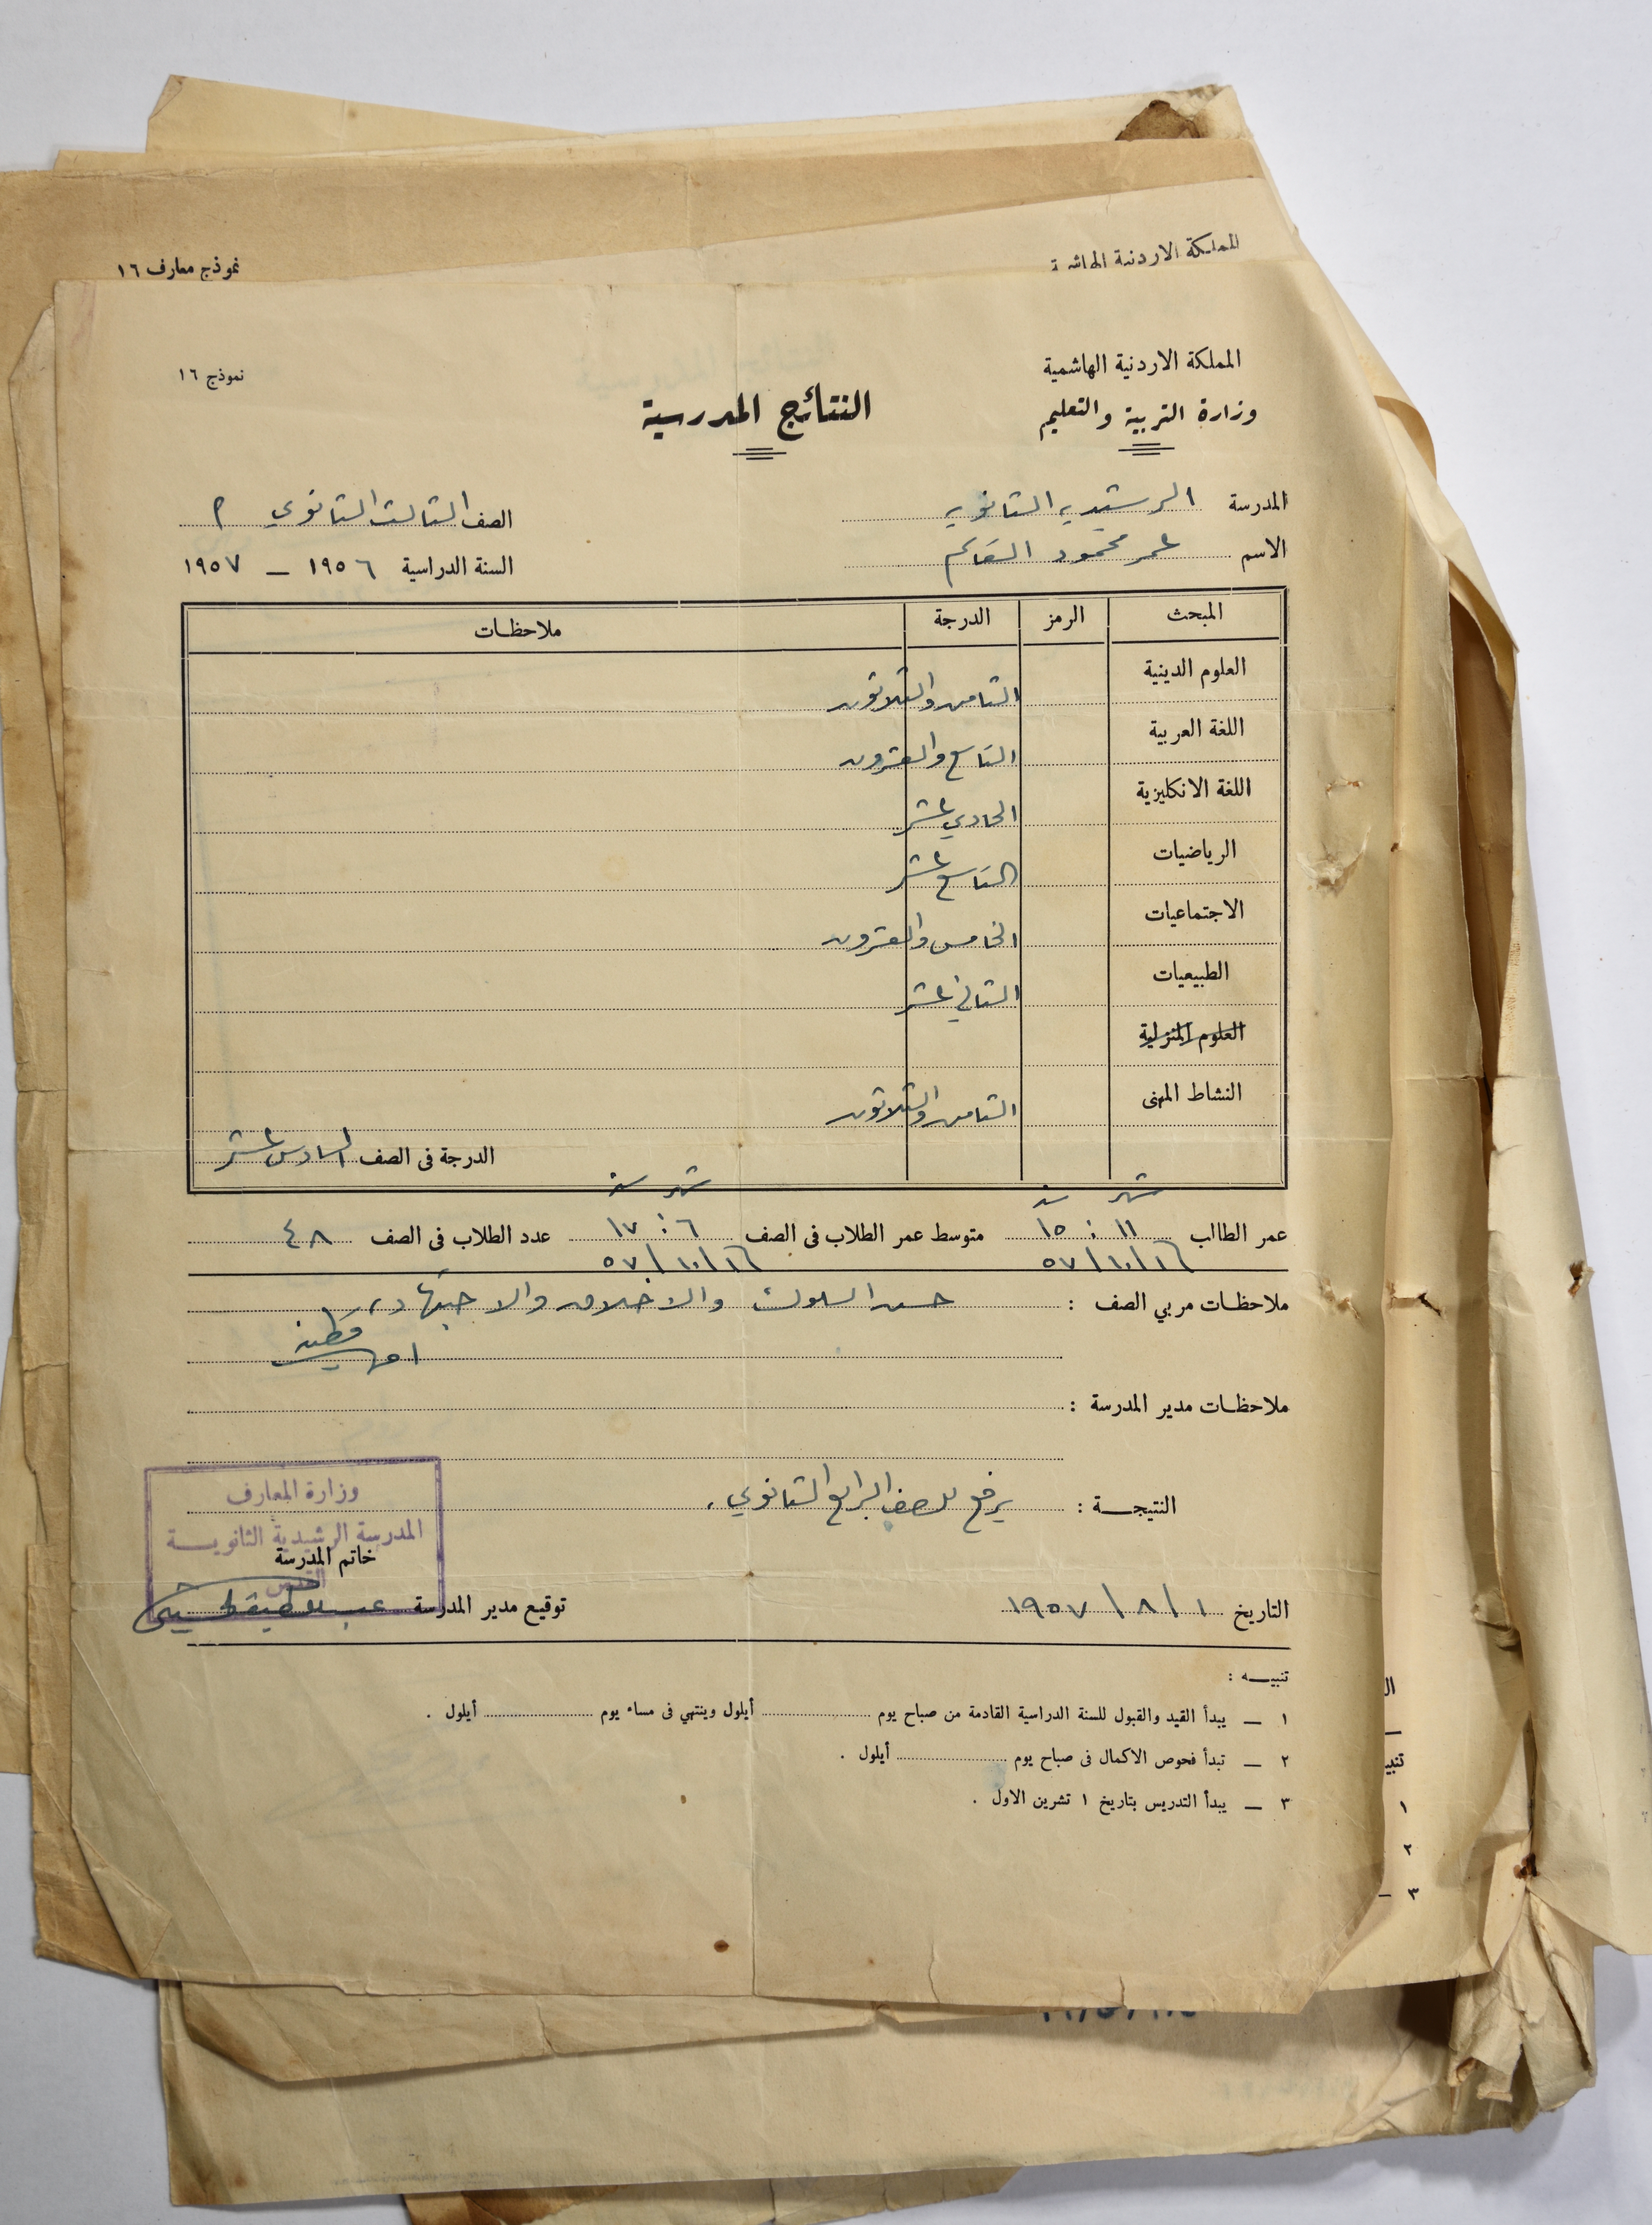 المملكة الاردنية الهاشمية
نموذج معارف ١٦
المملكة الاردنية الهاشمية
نموذج ١٦
وزارة التربية والتعليم
النتائج المدرسية
المدرسة الرشيديه الثانويه
الصف الثالث الثانوي م
الاسم عمر محمود القاسم
السنة الدراسية ١٩٥٦ — ١٩٥٧
المبحث الرمز الدرجة ملاحظات
العلوم الدينية الثامن والثلاثون
اللغة العربية التاسع والعشرون
اللغة الانكليزية الحادي عشر
الرياضيات التاسع عشر
الاجتماعيات الخامس والعشرون
الطبيعيات الثاني عشر
العلوم المنزلية
النشاط المهنى الثامن والثلاثون
الدرجة فى الصف السادس عشر
شهر سنة شهر سنة
عمر الطالب ١١ : ١٥ متوسط عمر الطلاب فى الصف ٦ : ١٧ عدد الطلاب فى الصف ٤٨
١٦/١٠/٥٧ ١٦/١٠/٥٧
ملاحظات مربي الصف : حسن السلوك والاخلاق والاجتهاد
ملاحظات مدير المدرسة :
النتيجة : يرفع للصف الرابع الثانوي .
وزارة المعارف
المدرسة الرشيدية الثانوية
القدس
خاتم المدرسة
التاريخ ١ / ٨ / ١٩٥٧
توقيع مدير المدرسة عبد اللطيف الحسيني
تنبيه :
١ — يبدأ القيد والقبول للسنة الدراسية القادمة من صباح يوم أيلول وينتهي فى مساء يوم أيلول .
٢ — تبدأ فحوص الاكمال فى صباح يوم أيلول .
٣ — يبدأ التدريس بتاريخ ١ تشرين الاول .
ال
تنبي
١
٢
٣ —